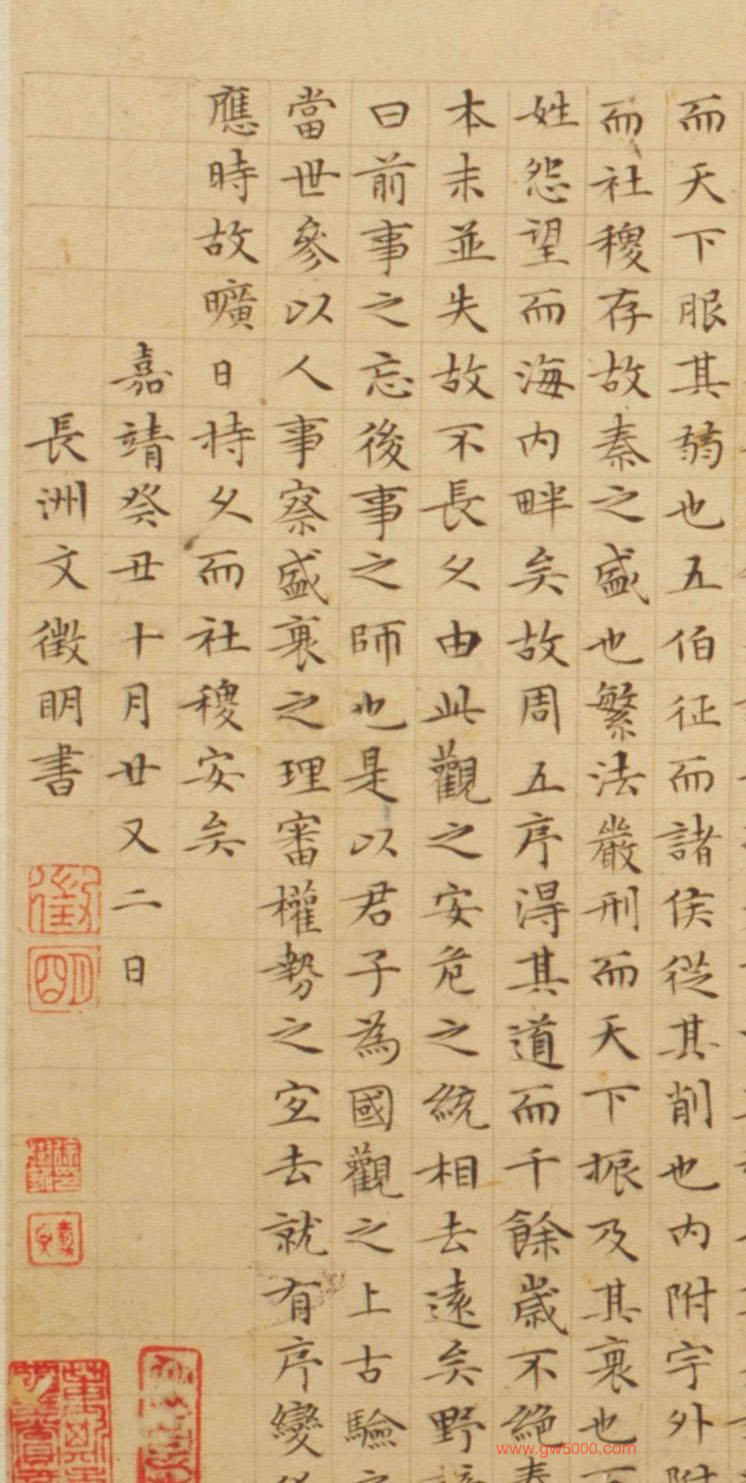 而天下服其弱也五伯征而諸侯從其削也内附宇外
而社稷存故秦之盛也繁法嚴刑而天下振及其衰也
姓怨望而海内畔矣故周五序得其道而千餘歲不絶秦
本末並失故不長久由此觀之安危之統相去遠矣野
曰前事之忘後事之師也是以君子為國觀之上古驗
當世參以人事察盛衰之理審權勢之宜去就有序變
應時故曠日持久而社稷安矣
嘉靖癸丑十月廿又二日
長洲文徵明書
徵
明
www.gw5000.com